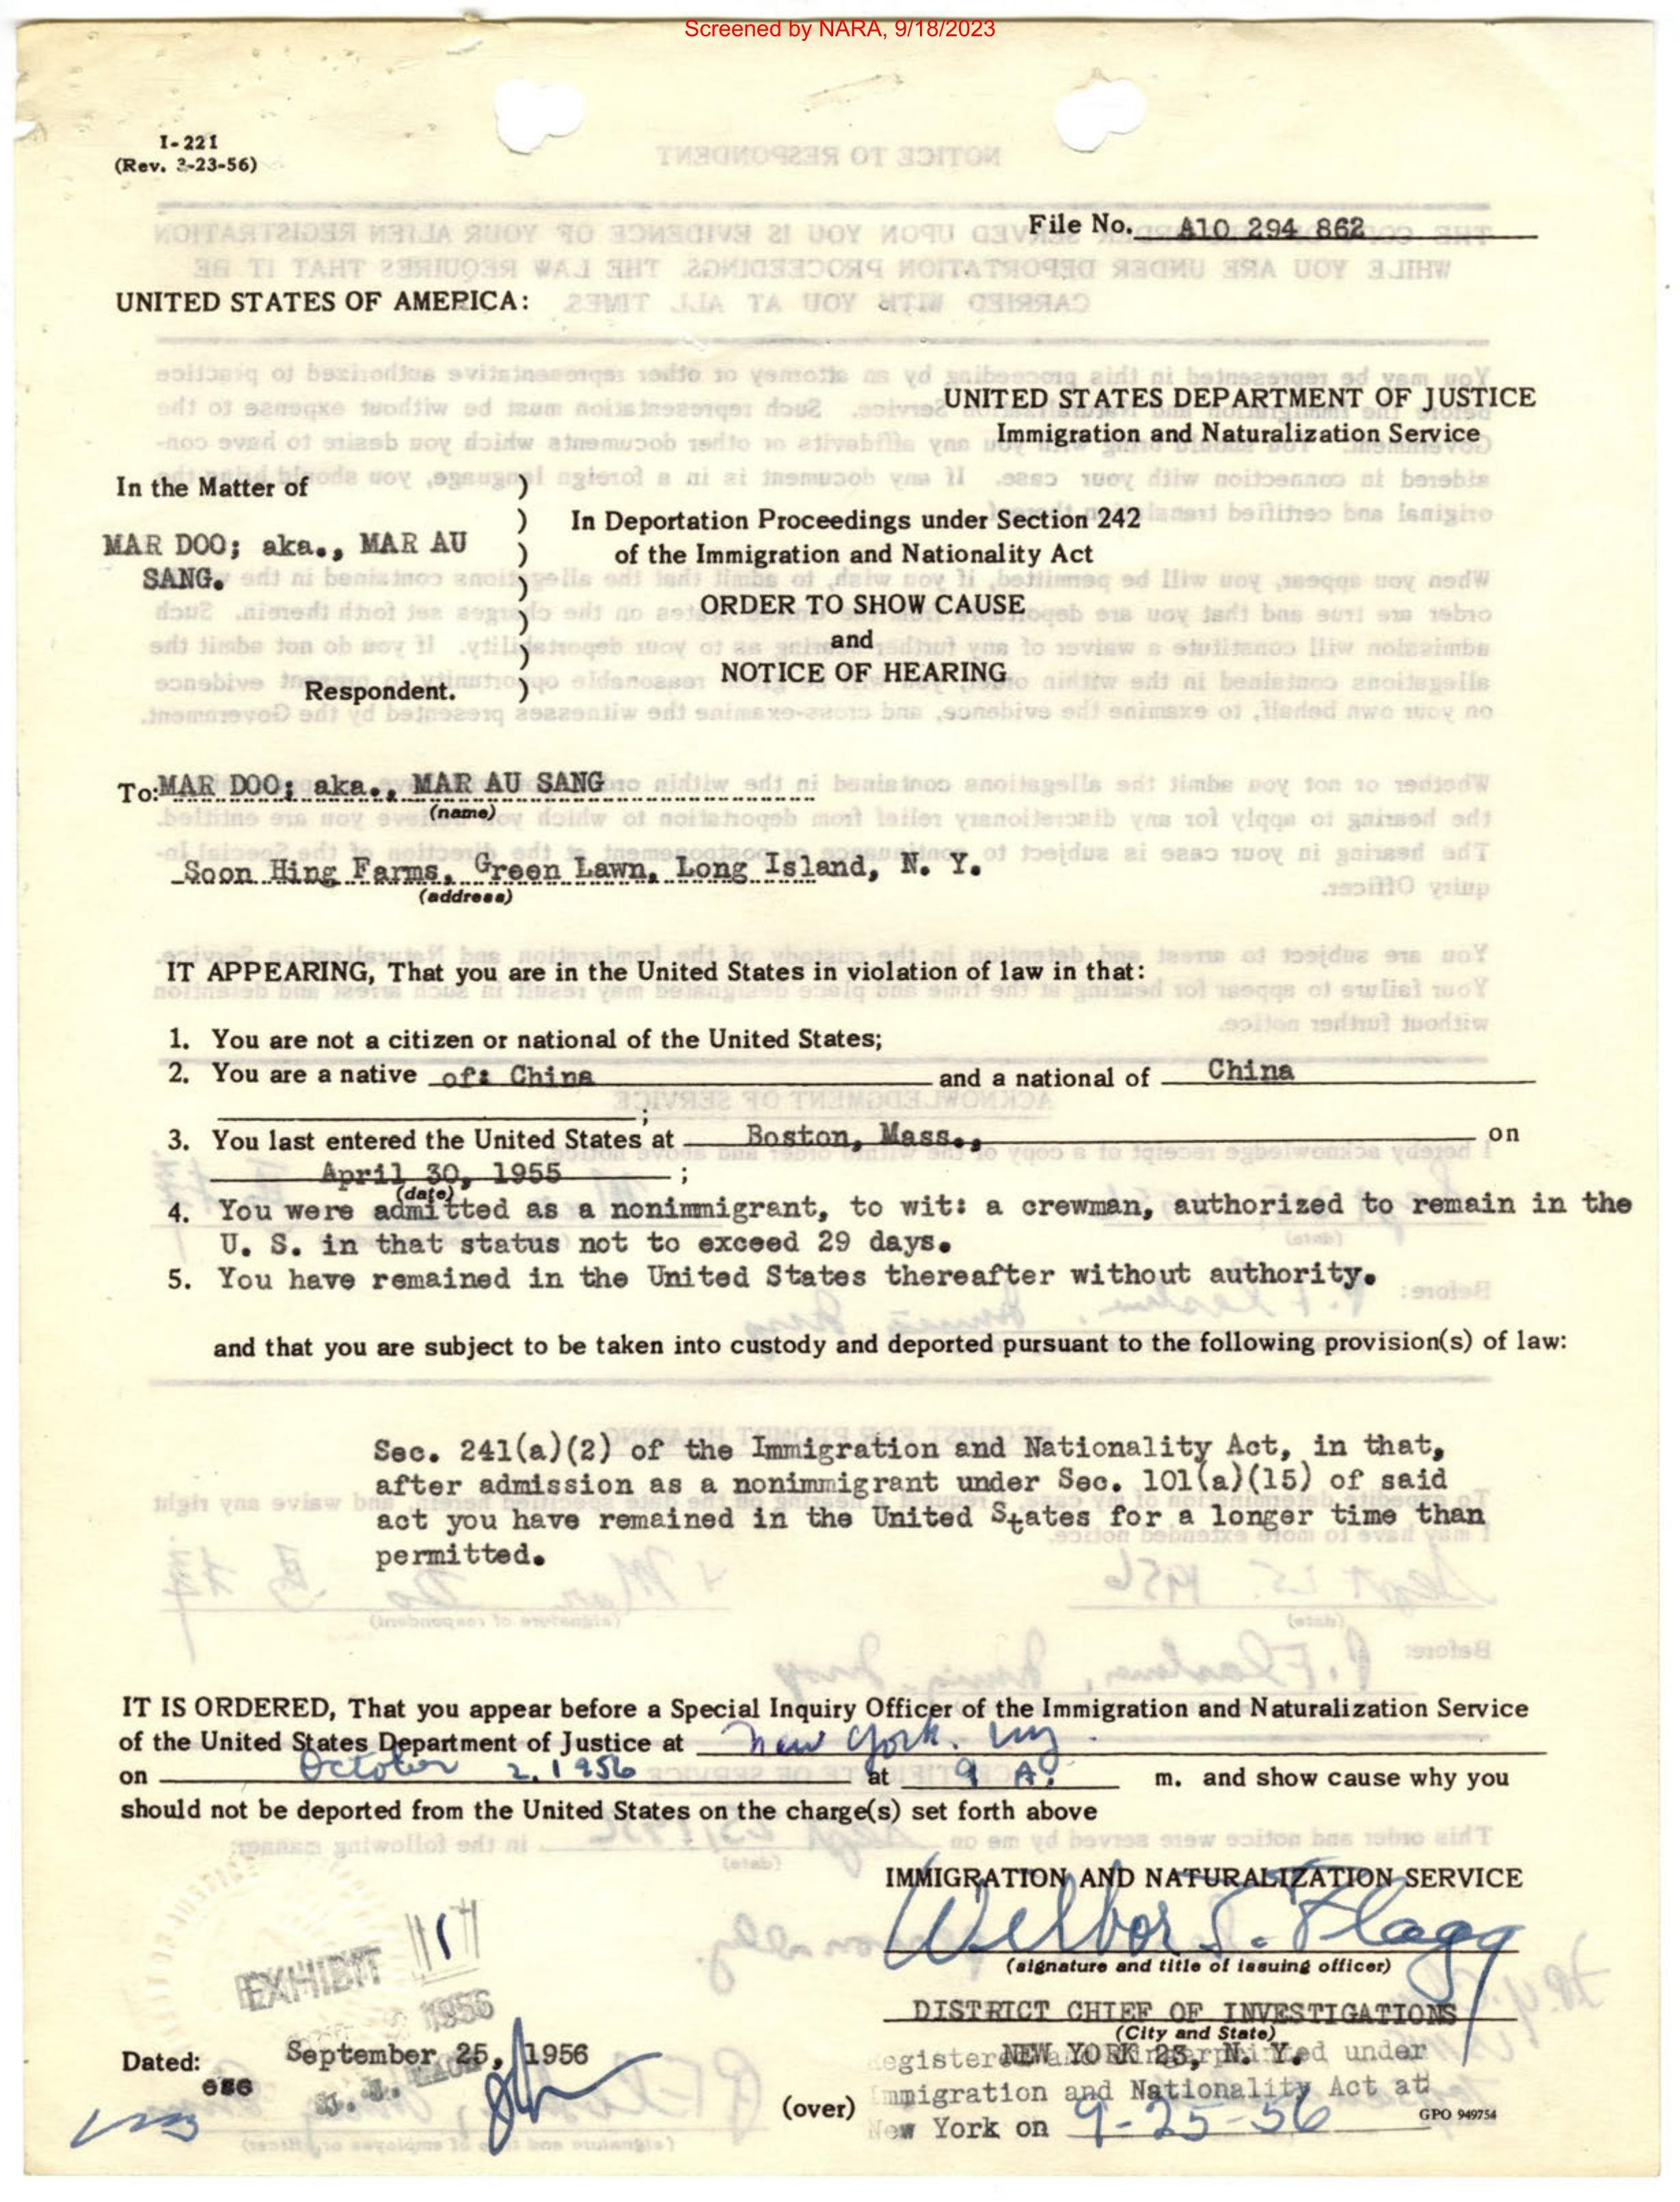 Screened by NARA, 9/18/2023
I-221
(Rev. 3-23-56)
File No. A10 294 862
UNITED STATES OF AMERICA:
UNITED STATES DEPARTMENT OF JUSTICE
Immigration and Naturalization Service
In the Matter of )
) In Deportation Proceedings under Section 242
MAR DOO; aka., MAR AU ) of the Immigration and Nationality Act
SANG. )
ORDER TO SHOW CAUSE
)
and
)
NOTICE OF HEARING
Respondent. )
To: MAR DOO; aka., MAR AU SANG
(name)
Soon Hing Farms, Green Lawn, Long Island, N. Y.
(address)
IT APPEARING, That you are in the United States in violation of law in that:
1. You are not a citizen or national of the United States;
2. You are a native of: China and a national of China
;
3. You last entered the United States at Boston, Mass., on
April 30, 1955 ;
(date)
4. You were admitted as a nonimmigrant, to wit: a crewman, authorized to remain in the
U. S. in that status not to exceed 29 days.
5. You have remained in the United States thereafter without authority.
and that you are subject to be taken into custody and deported pursuant to the following provision(s) of law:
Sec. 241(a)(2) of the Immigration and Nationality Act, in that,
after admission as a nonimmigrant under Sec. 101(a)(15) of said
act you have remained in the United States for a longer time than
permitted.
IT IS ORDERED, That you appear before a Special Inquiry Officer of the Immigration and Naturalization Service
of the United States Department of Justice at New York. NY.
on October 2, 1956 at 9 A. m. and show cause why you
should not be deported from the United States on the charge(s) set forth above
IMMIGRATION AND NATURALIZATION SERVICE
Wilbor S. Flagg
(signature and title of issuing officer)
EXHIBIT 1
1956
DISTRICT CHIEF OF INVESTIGATIONS
(City and State)
NEW YORK 23, N. Y.
Dated: September 25, 1956
egistered and fingerprinted under
Immigration and Nationality Act at
(over)
New York on 9-25-56
GPO 949754